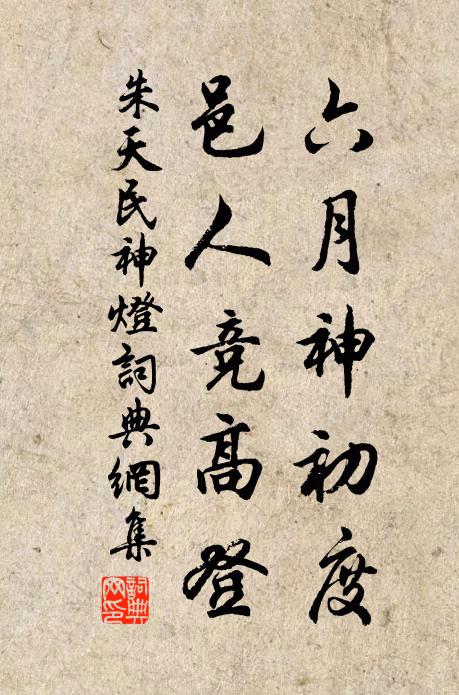 六月神初度
邑人竞高登
朱天民神燈詞典網集
詞典網印